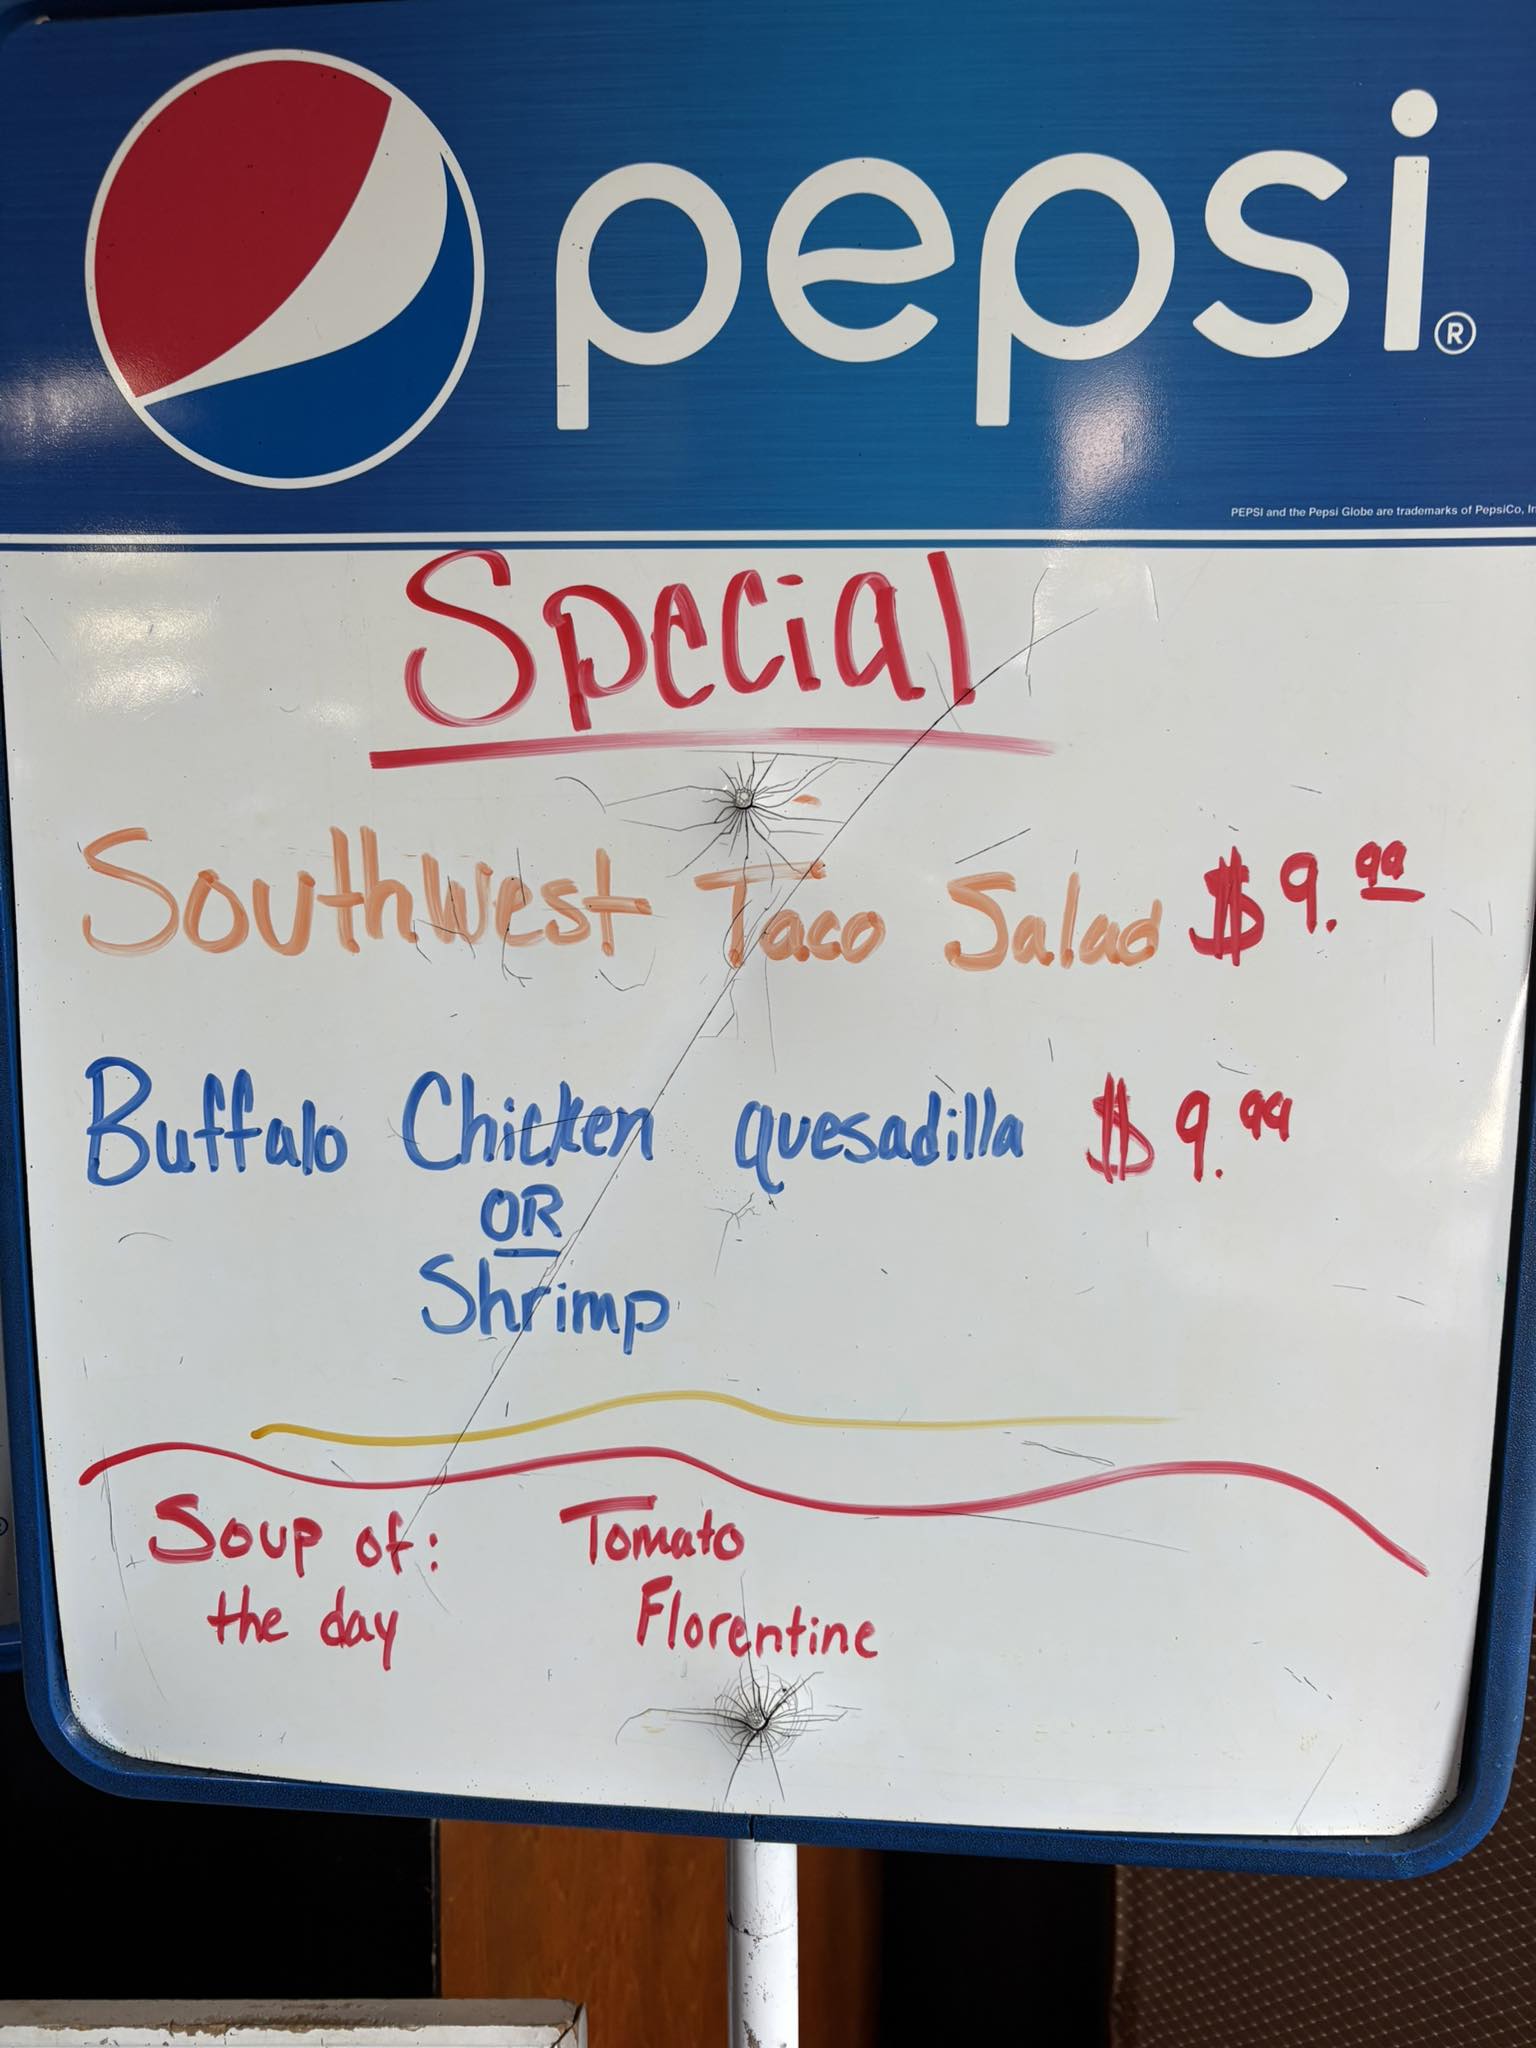 pepsi®
PEPSI and the Pepsi Globe are trademarks of PepsiCo,
Special
Southwest Taco Salad $9.99
Buffalo Chicken quesadilla $9.99
OR
Shrimp
Soup of: Tomato
the day Florentine